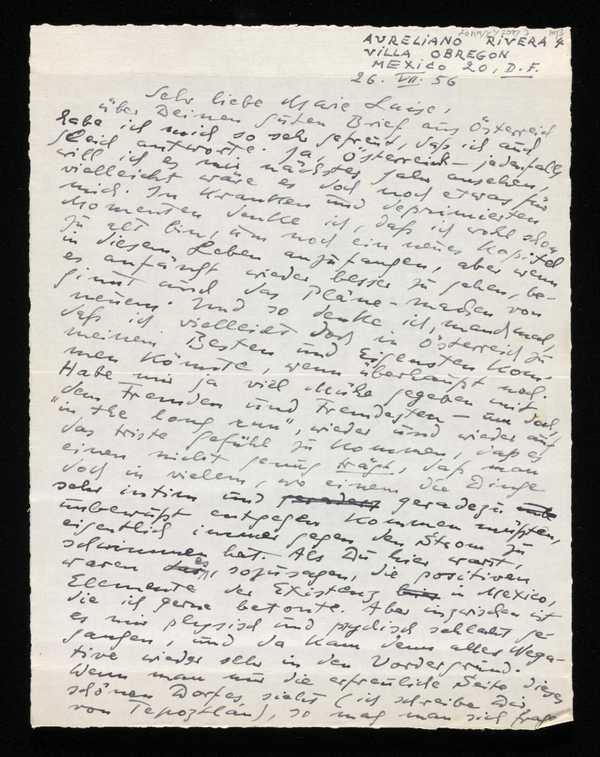 AURELIANO RIVERA 4
VILLA OBREGON
MEXICO 20, D.F.
26. VII. 56
Sehr liebe Marie Luise,
über Deinen guten Brief aus Österreich
habe ich mich so sehr gefreut, daß ich auch
gleich antworte. Ja, Österreich – jedenfalls
will ich es mir nächstes Jahr ansehen,
vielleicht wäre es doch noch etwas für
mich. In kranken und deprimierten
Momenten denke ich, daß ich wohl schon
zu alt bin, um noch ein neues Kapitel
in diesem Leben anzufangen, aber wenn
es anfängt wieder besser zu gehen, be-
ginnt auch das Pläne-machen von
neuem. Und so denke ich, manchmal,
daß ich vielleicht doch in Österreich zu
meinem Besten und Eigensten kom-
men könnte, wenn überhaupt noch.
Habe mir ja viel Mühe gegeben mit
dem Fremden und Fremdesten – um doch,
"in the long run", wieder und wieder auf
das triste Gefühl zu kommen, daß es
einen nicht genug trägt, daß man
doch in vielem, wo einem die Dinge
sehr intim und geradezu
unbewußt entgegen kommen müßten,
eigentlich immer gegen den Strom zu
schwimmen hat. Als Du hier warst,
waren es, sozusagen, die positiven
Elemente der Existenz in Mexico,
die ich gerne betonte. Aber inzwischen ist
es mir physisch und psychisch schlecht ge-
gangen, und da kam denn alles Nega-
tive wieder sehr in den Vordergrund.
Wenn man nur die erfreuliche Seite dieses
schönen Dorfes sieht (ich schreibe Dir
von Tepoztlán), so mag man sich fragen